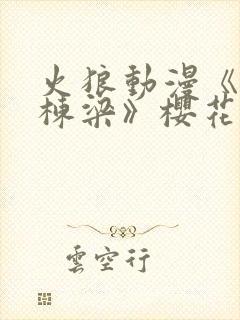 火狼動漫《
棟梁》櫻花
雲空行